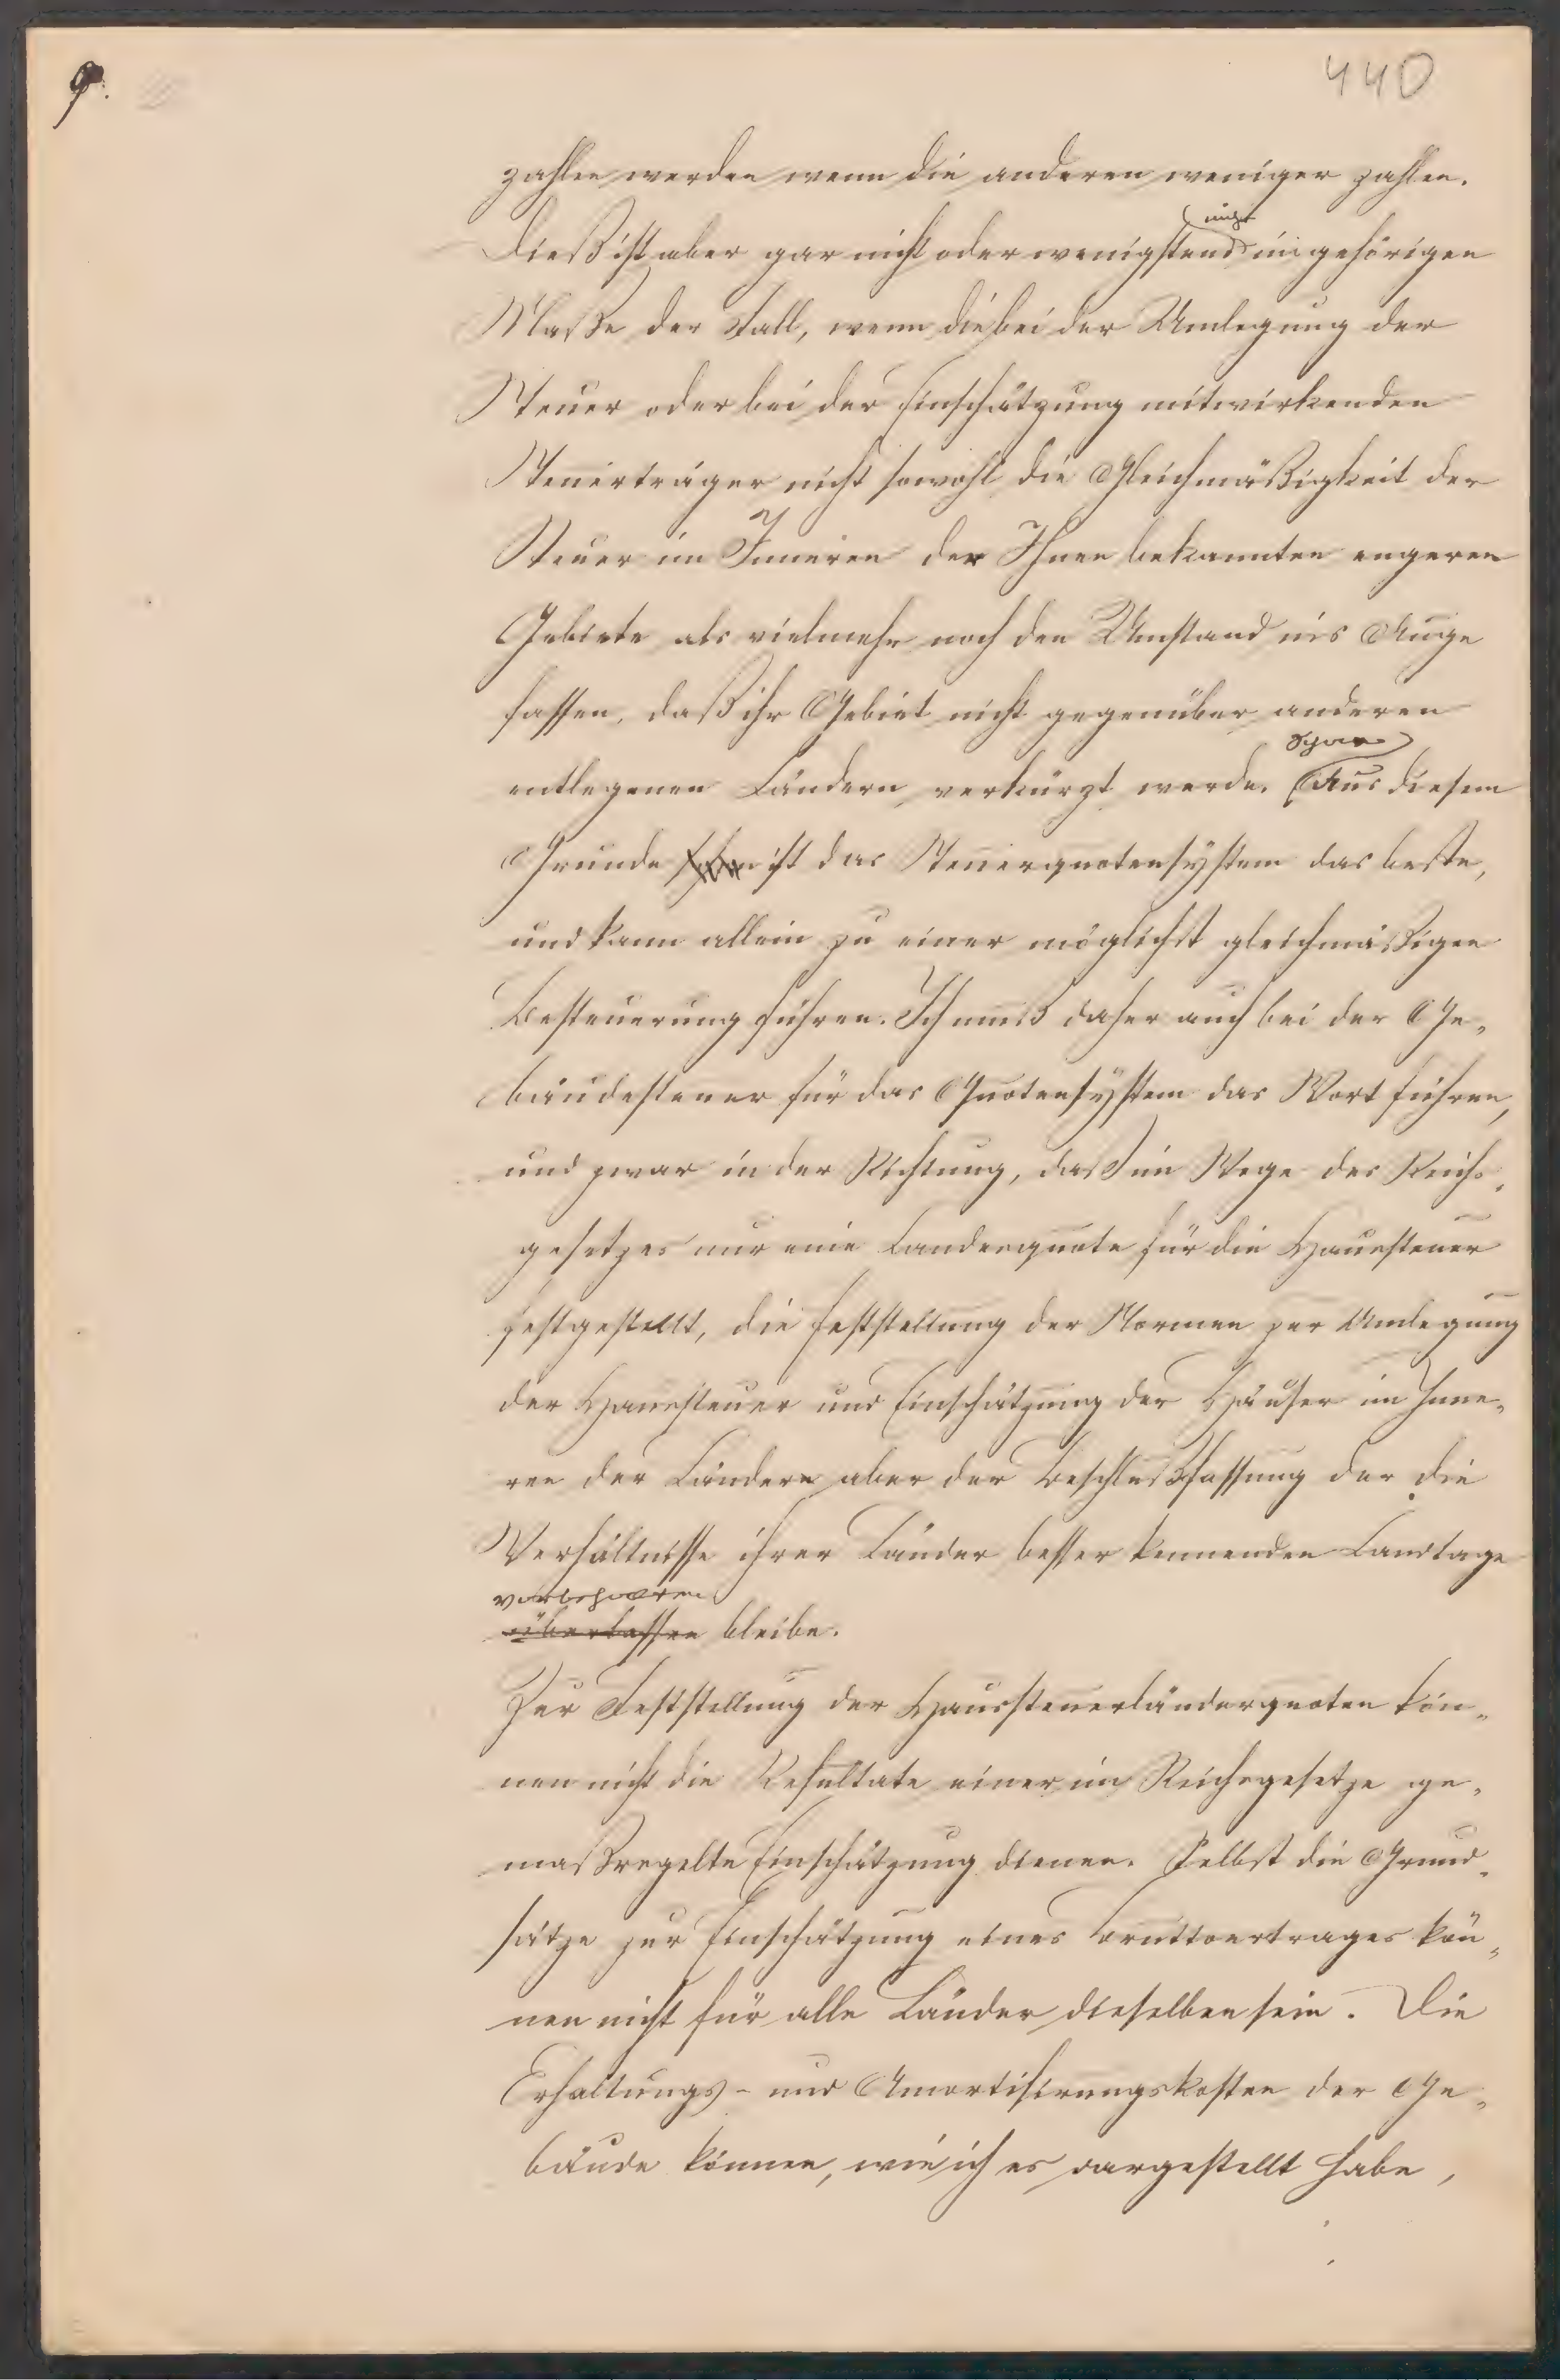 9.
440
zahlen werden wenn die anderen weniger zahlen.
nicht
Dieß ist aber gar nicht oder wenigstens im gehörigen
Maße der Fall, wenn die bei der Umlegung der
Steuer oder bei der Einschätzung mitwirkenden
Steuerträger nicht sowohl die Gleichmäßigkeit der
Steuer im Inneren der Ihnen bekannten engeren
Gebiete als vielmehr noch den Umstand ins Auge
fassen, daß ihr Gebiet nicht gegenüber anderen
Schon
entlegenen Ländern verkürzt werde. Aus diesem
Grunde schon ist das Steuerquotensystem das beste,
und kann allein zu einer möglichst gleichmäßigen
Besteuerung führen. Ich muß daher auch bei der Ge-
bäudesteuer für das Quotensystem das Wort führen,
und zwar in der Richtung, daß im Wege des Reichs-
gesetzes nur eine Landesquote für die Haussteuer
festgestellt, die Feststellung der Normen zur Umlegung
der Haussteuer und Einschätzung der Häuser im Inne-
ren der Länder aber der Beschlußfassung der die
Verhältnisse ihrer Länder besser kennenden Landtage
vorbehalten
überlassen bleibe.
Zur Feststellung der Haussteuerländerquoten kön-
nen nicht die Resultate einer im Reichsgesetze ge-
maßregelte Einschätzung dienen. Selbst die Grund-
sätze zur Einschätzung eines Bruttoertrages kön-
nen nicht für alle Länder dieselben sein. Die
Erhaltungs- und Amortisirungskosten der Ge-
bäude können, wie ich es dargestellt habe,